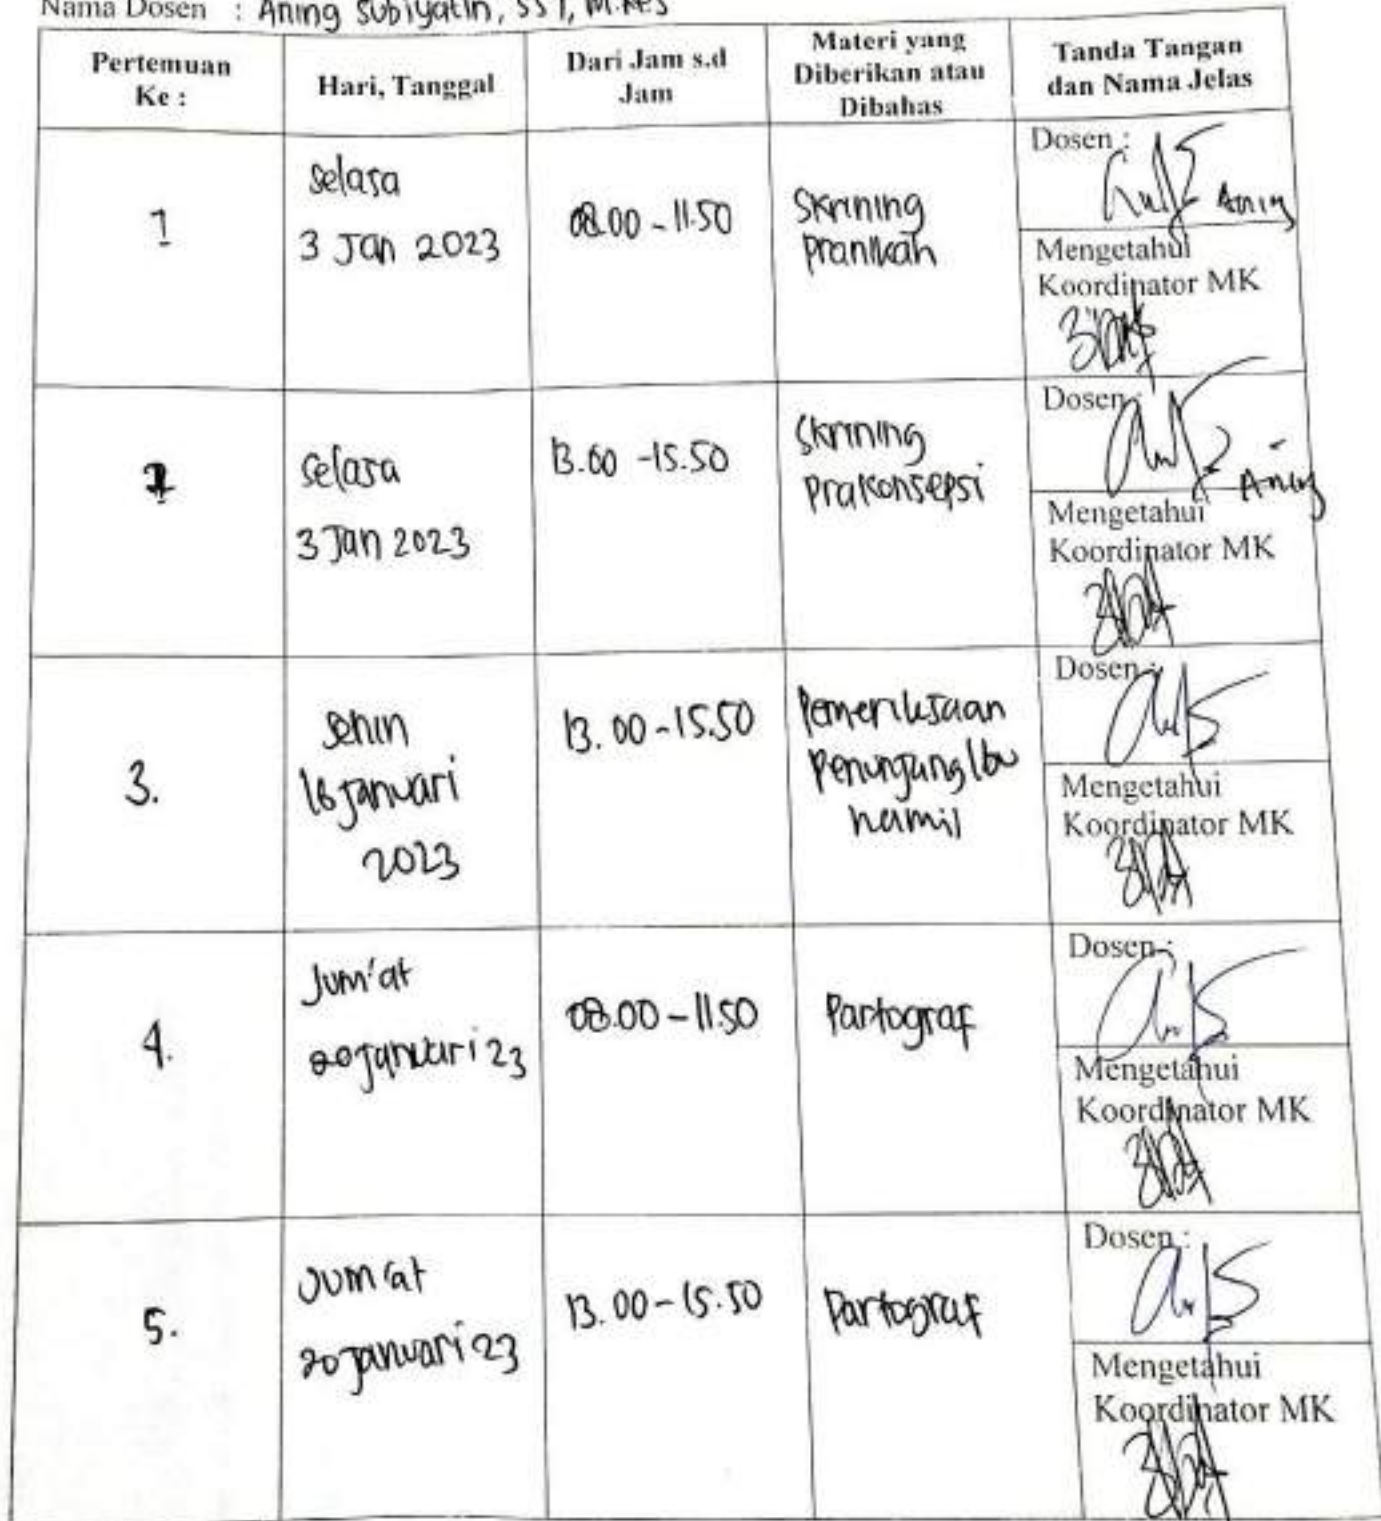 Nama Dosen : Aning Subiyatin, SST, M.Kes
Pertemuan
Ke :
Hari, Tanggal
Dari Jam s.d
Jam
Materi yang
Diberikan atau
Dibahas
Tanda Tangan
dan Nama Jelas
1
Selasa
3 Jan 2023
08.00 - 11.50
Skrining
Pranikah
Dosen :
Aning
Mengetahui
Koordinator MK
2
Selasa
3 Jan 2023
13.00 - 15.50
Skrining
Prakonsepsi
Dosen :
Aning
Mengetahui
Koordinator MK
3.
Senin
16 Januari
2023
13.00 - 15.50
Pemeriksaan
Penunjang Ibu
hamil
Dosen :
Mengetahui
Koordinator MK
4.
Jum'at
20 Januari 23
08.00 - 11.50
Partograf
Dosen :
Mengetahui
Koordinator MK
5.
Jum'at
20 Januari 23
13.00 - 15.50
Partograf
Dosen :
Mengetahui
Koordinator MK